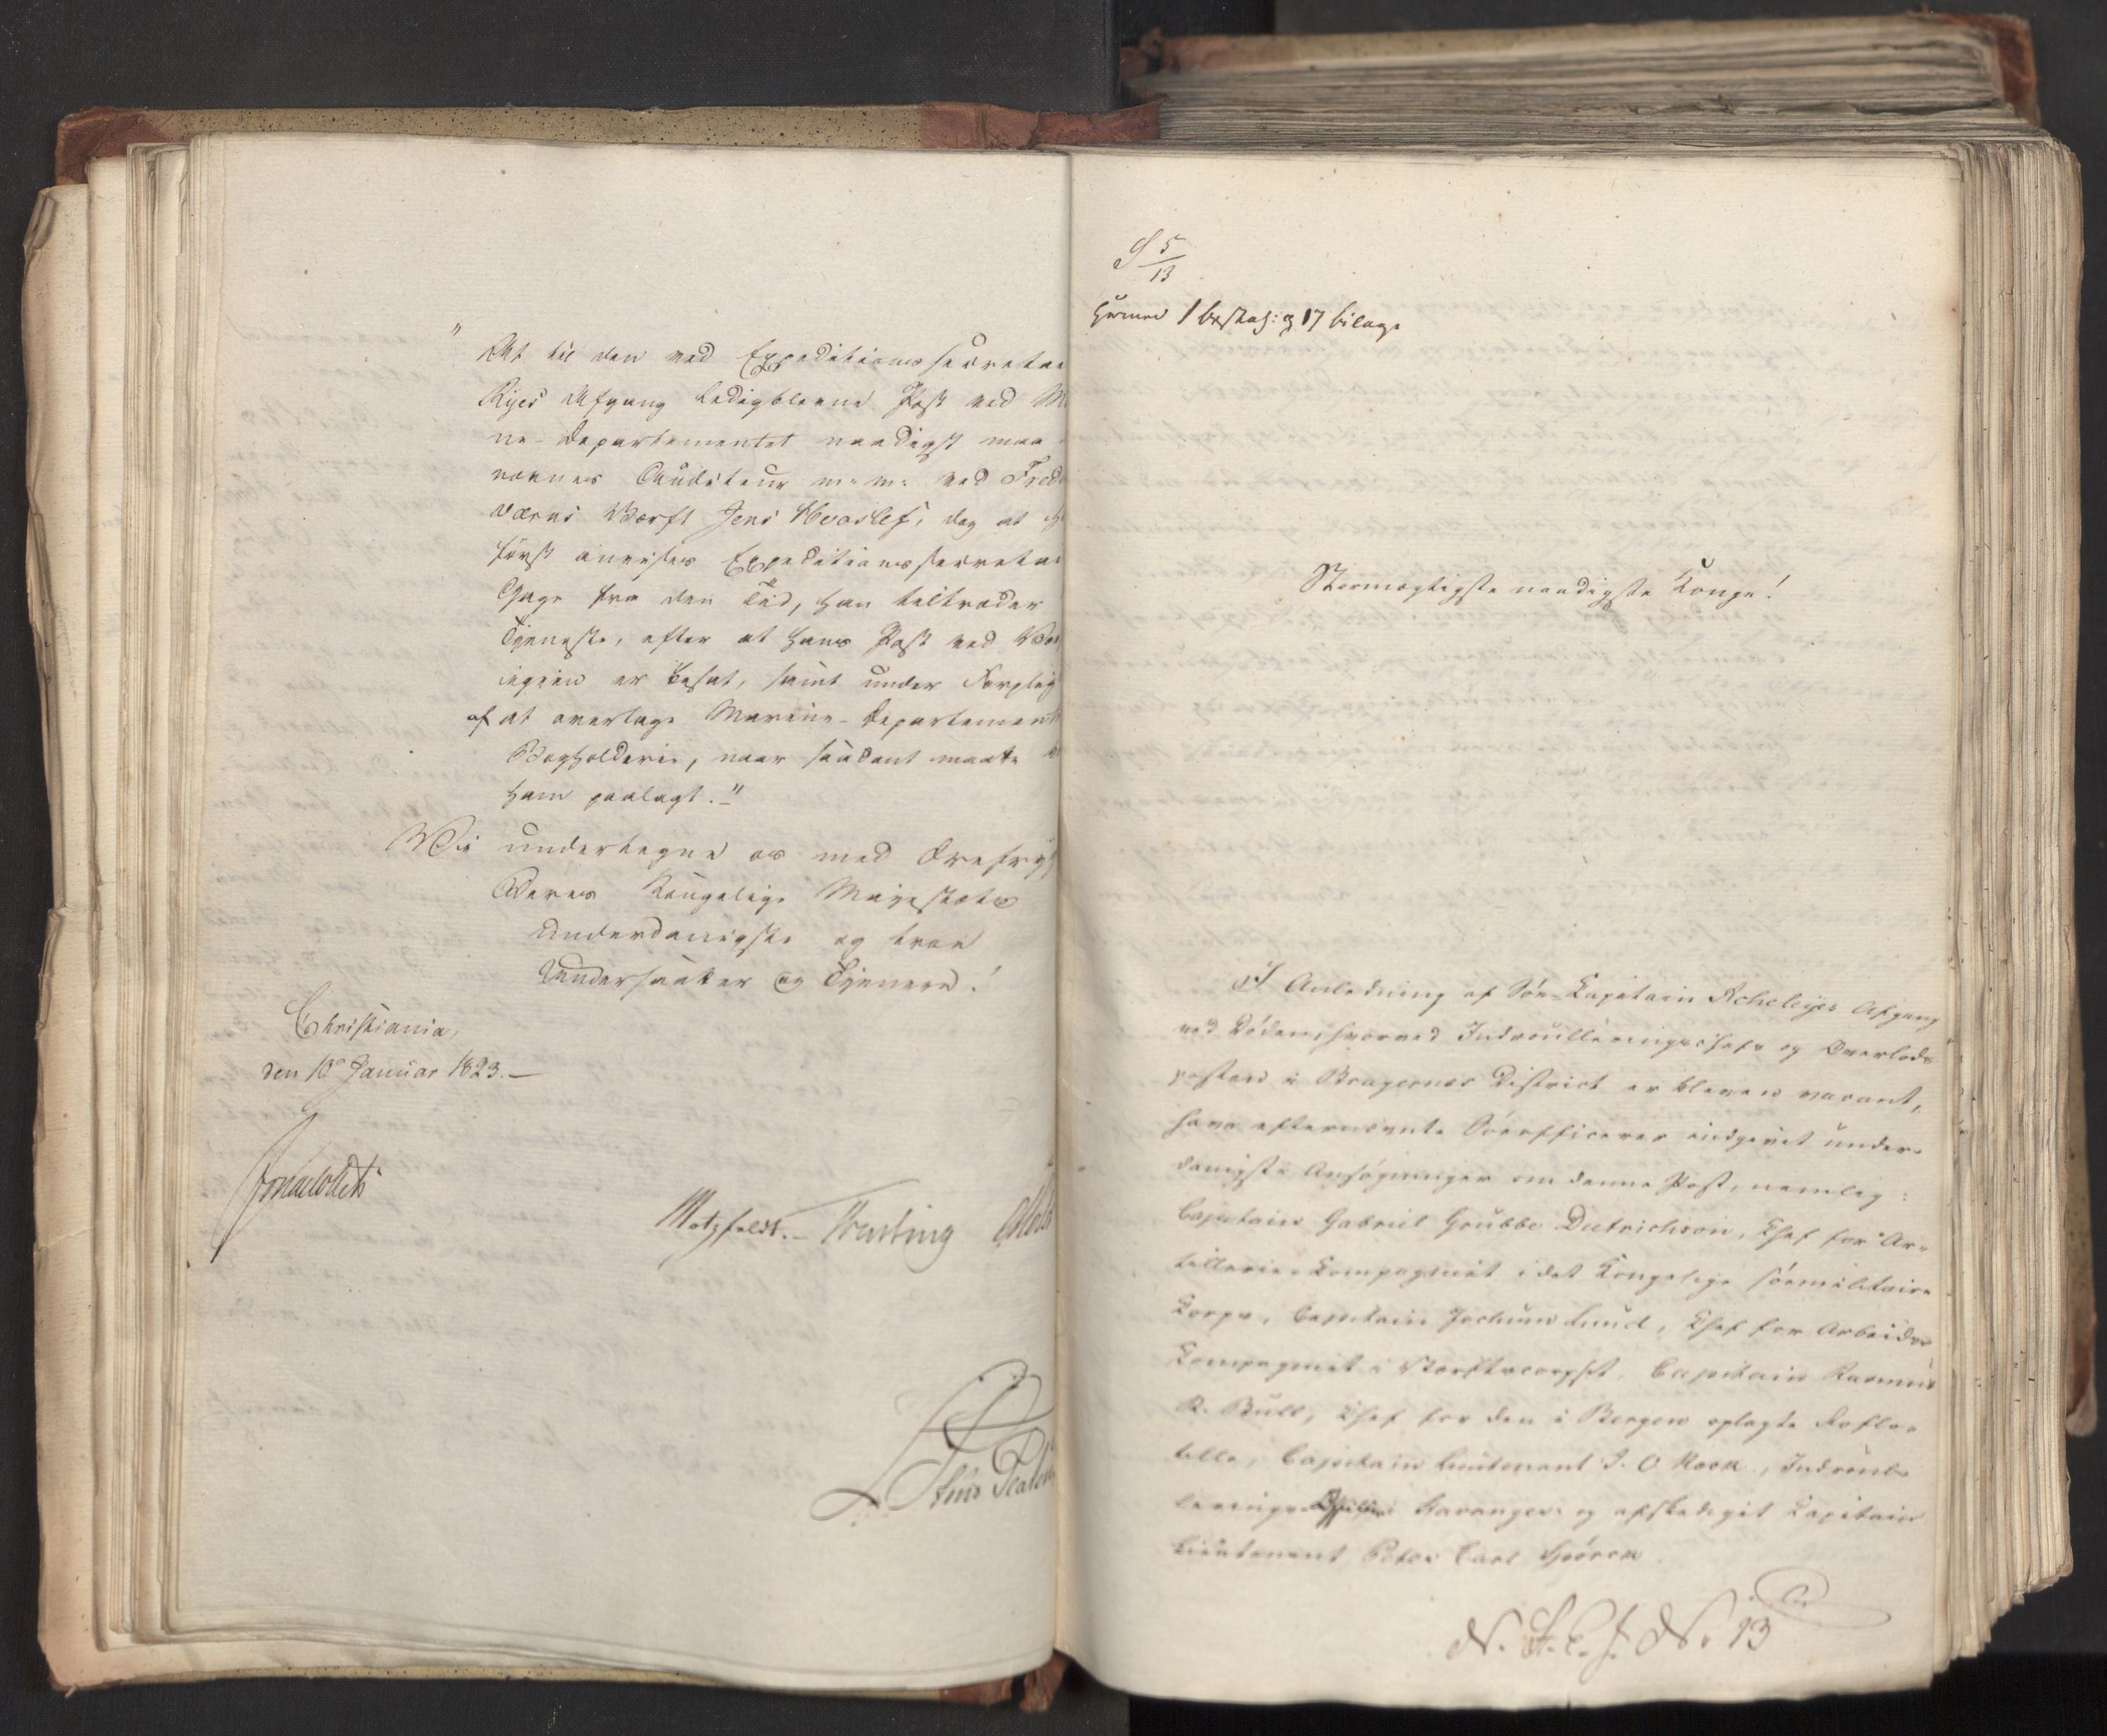 "At til den ved Expeditionssecretai
Ryes Afgang ledigblevne Post ved Ma
ne-Departementet naadigst maa
nævnes Auditeur m: m: ved Fred
værns Værft Jens Hvoslef, dog at h
først anvises Expeditionssecretai
Gage fra den Tid, han tiltræder
Tjeneste, efter at hans Post ved Vær
igjen er besat, samt under Forplig
af at overtage Marine-Departement
Bogholderie, naar saadant maatte
ham paalagt."
Vi undertegne os med Ærefryg
Deres Kongelige Majestæts
underdanigste og troe
Undersaatter og Tjenere!
Christiania,
den 10de Januar 1823.
Motzfeldt.
S 5/13
Hermed 1 og 17 bilage
Stormægtigste naadigste Konge!
I Anledning af Søe-Capitain Acheleyes Afgang
ved Døden, hvorved Indroulleringschefs og Overlods
posten i Bragernes District er bleven vacant,
have efternævnte Søeofficerer indgivet under-
danigste Ansøgninger om denne Post, nemlig:
Capitain Gabriel Grubbe Dietrichson, Chef for Ar-
tillerie-Compagniet i det Kongelige Søemilitaire
Corps, Capitain Jochum Lund, Chef for Arbeids
Compagniet i Værftscorpset, Capitain Rasmus
R. Bull, Chef for den i Bergen oplagte Roflo-
tille, Capitain Lieutenant J. O Rosen, Indroul-
lerings i Stavanger og afskediget Capitain
Lieutenant Peter Carl